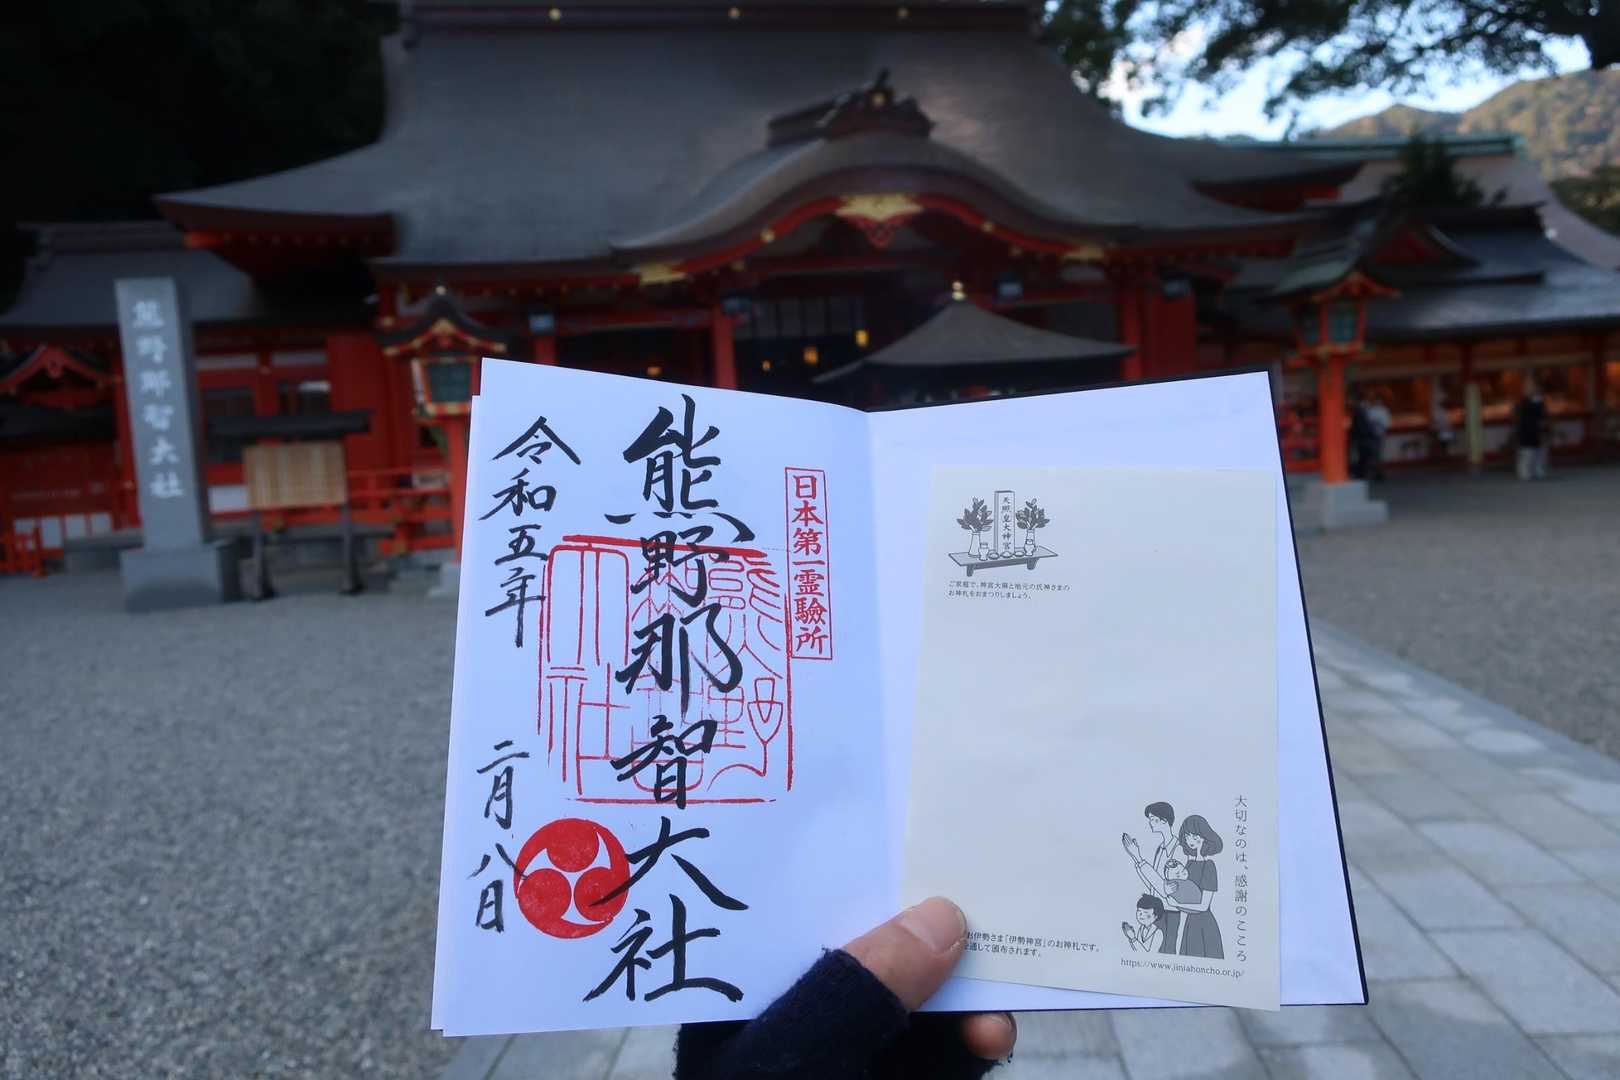 熊野那智大社
日本第一霊驗所
熊野那智大社
令和五年
二月八日
天照皇大神宮
ご家庭で、神宮大麻と地元の氏神さまの
お神札をおまつりしましょう。
大切なのは、感謝のこころ
お伊勢さま「伊勢神宮」のお神札です。
を通して頒布されます。
https://www.jinjahoncho.or.jp/